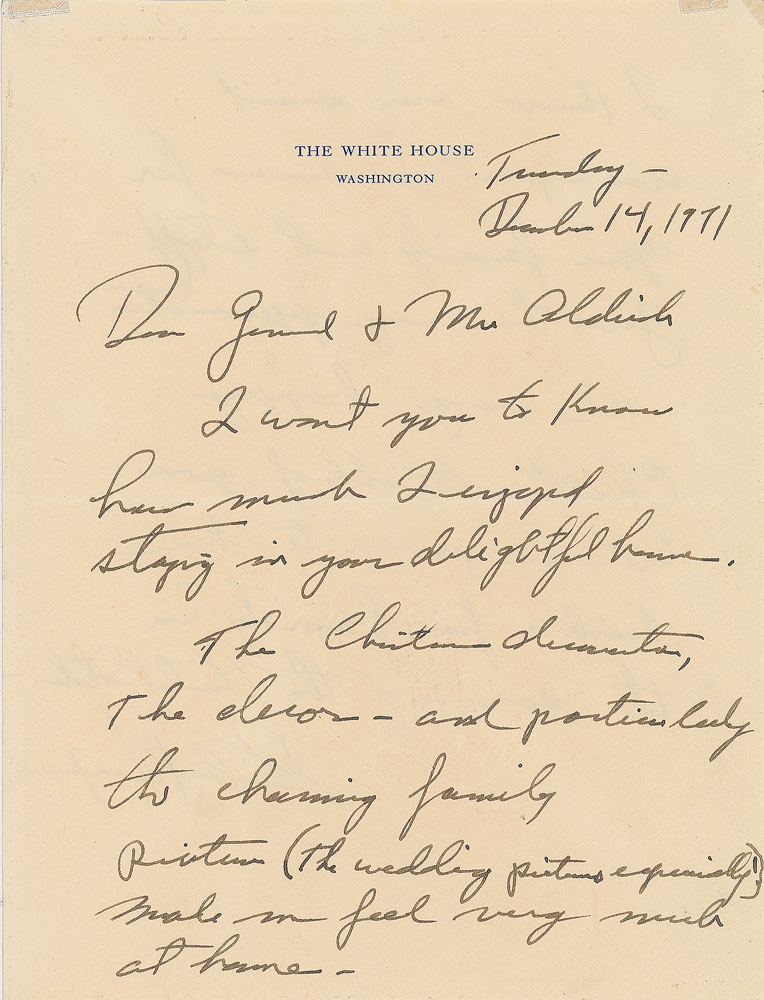 THE WHITE HOUSE
WASHINGTON
Tuesday –
December 14, 1971
Dear General & Mrs Aldrich
I want you to know
how much I enjoyed
staying in your delightful home.
The Christmas decorations,
the decor – and particularly
the charming family
pictures (the wedding pictures especially!)
make me feel very much
at home –